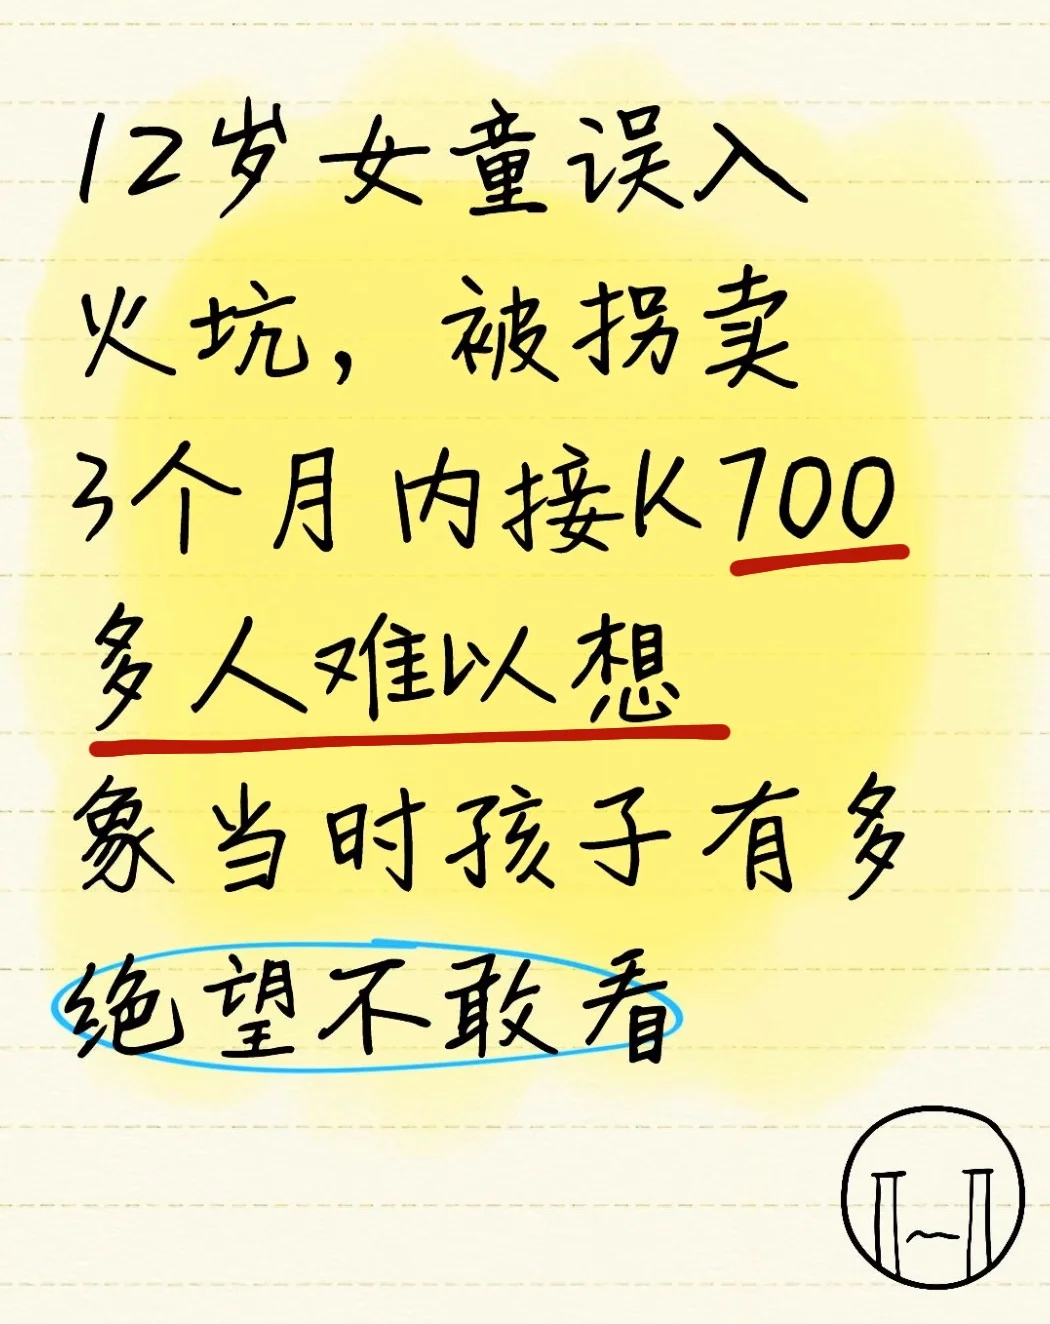 12岁女童误入
火坑，被拐卖
3个月内接K700
多人难以想
象当时孩子有多
绝望不敢看